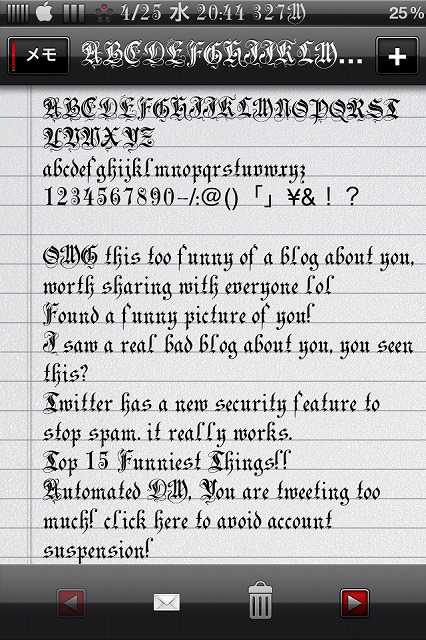 4/25 水 20:44 327M 25%
メモ ABCDEFGHIJKLM... +
ABCDEFGHIJKLMNOPQRST
UVWXYZ
abcdefghijklmnopqrstuvwxyz
1234567890-/:@()「」¥&！？
OMG this too funny of a blog about you,
worth sharing with everyone lol
Found a funny picture of you!
I saw a real bad blog about you, you seen
this?
Twitter has a new security feature to
stop spam. it really works.
Top 15 Funniest Things!!
Automated DM, You are tweeting too
much! click here to avoid account
suspension!